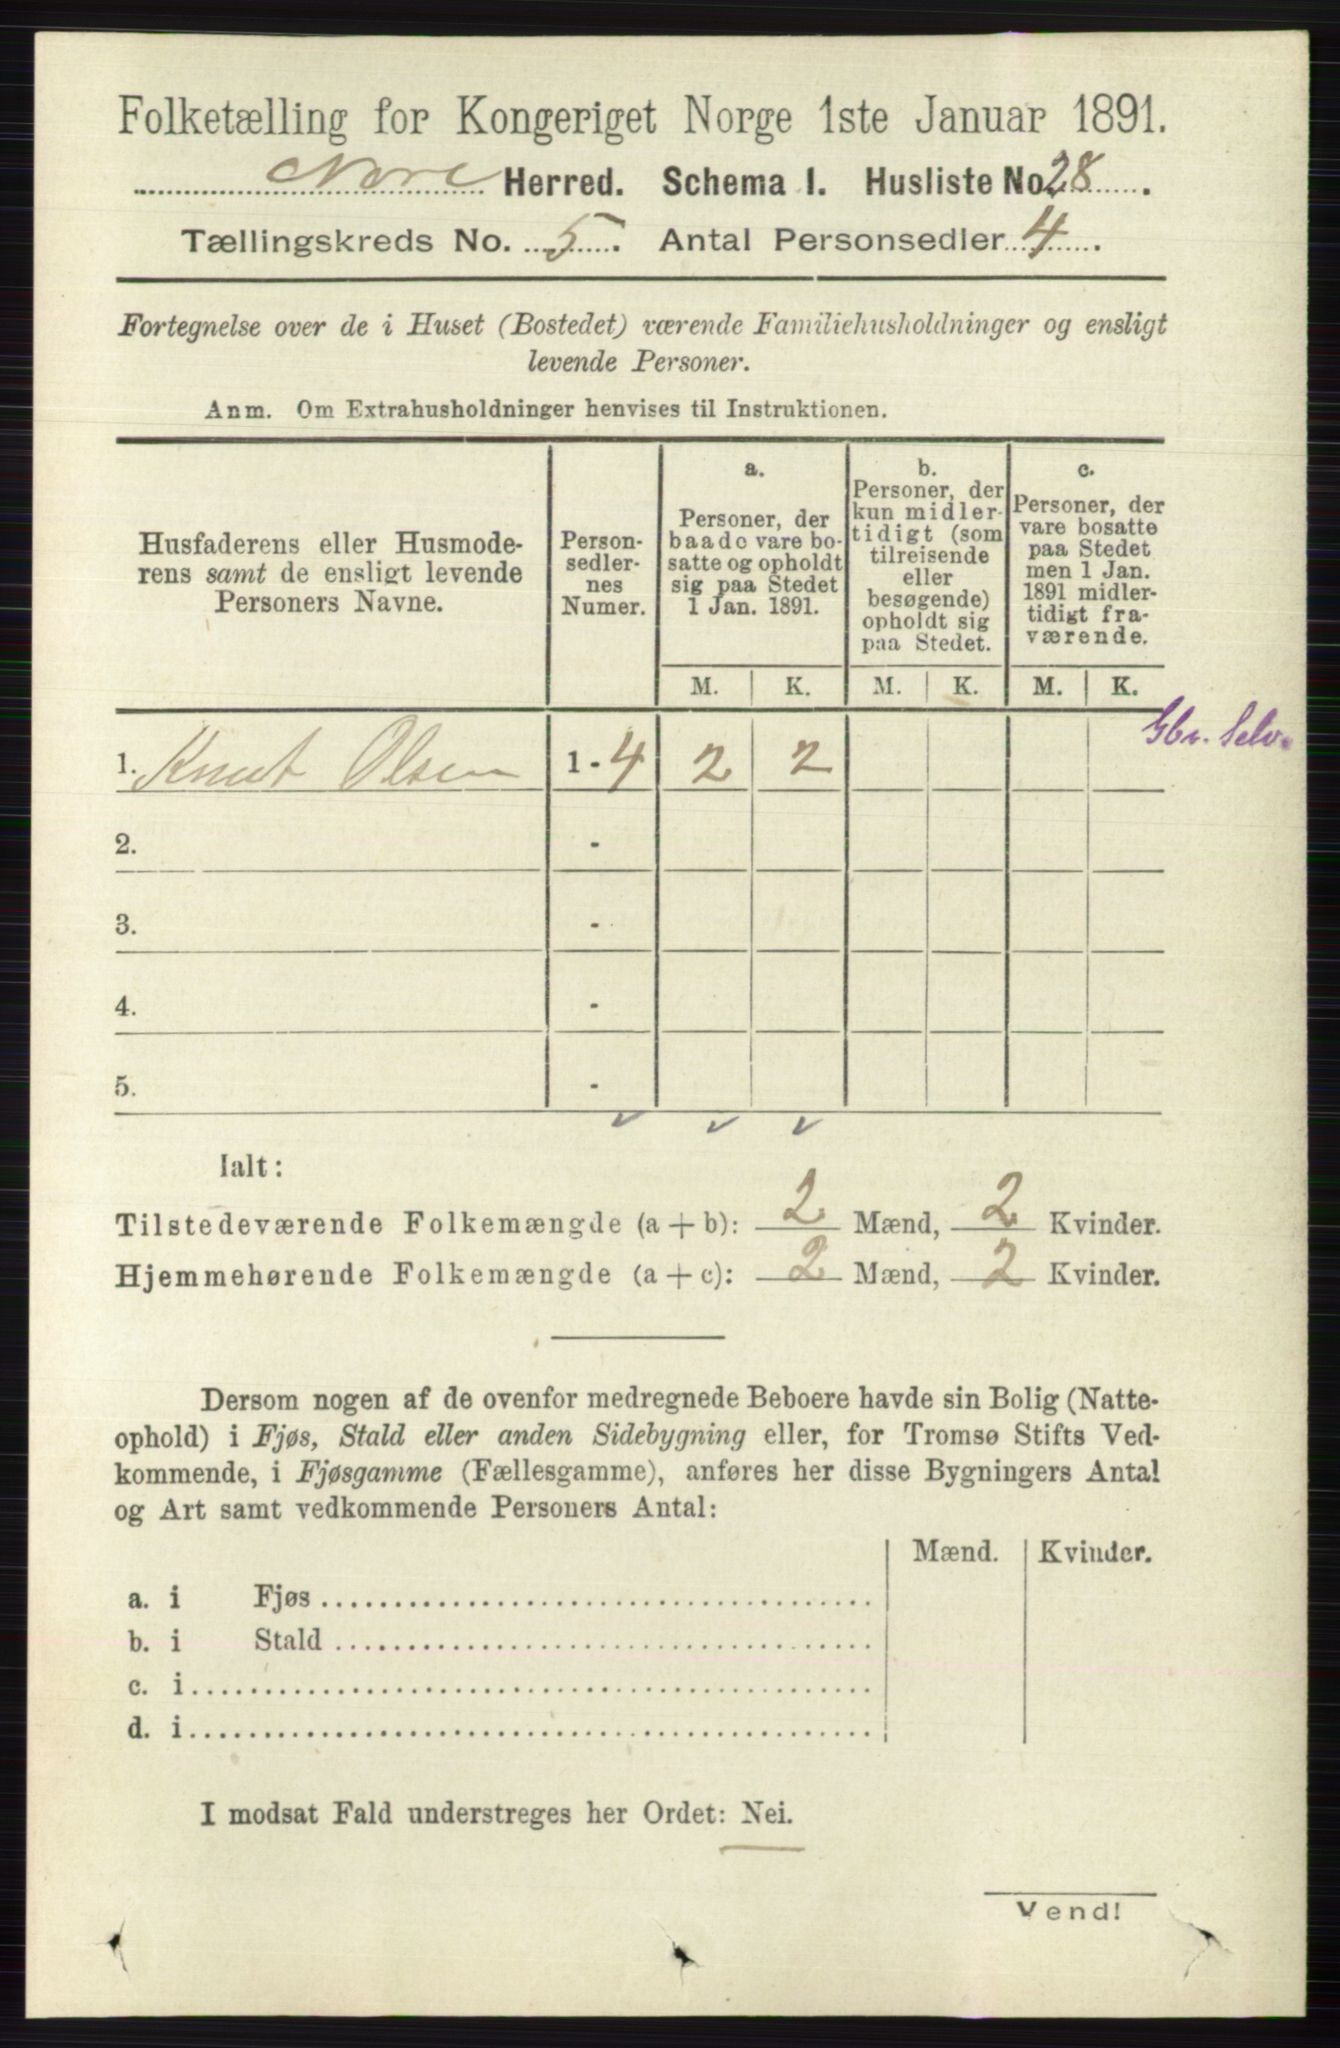 Folketælling for Kongeriget Norge 1ste Januar 1891.
Nore Herred. Schema I. Husliste No 28.
Tællingskreds No. 5. Antal Personsedler 4.
Fortegnelse over de i Huset (Bostedet) værende Familiehusholdninger og ensligt
levende Personer.
Anm. Om Extrahusholdninger henvises til Instruktionen.
Husfaderens eller Husmode-
rens samt de ensligt levende
Personers Navne.
Person-
sedler-
nes
Numer.
a.
Personer, der
baade vare bo-
satte og opholdt
sig paa Stedet
1 Jan. 1891.
b.
Personer, der
kun midler-
tidigt (som
tilreisende
eller
besøgende)
opholdt sig
paa Stedet.
c.
Personer, der
vare bosatte
paa Stedet
men 1 Jan.
1891 midler-
tidigt fra-
værende.
M. K. M. K. M. K.
Gbr. Selv.
1. Knut Olsen 1 - 4 2 2
2. -
3. -
4. -
5. -
Ialt:
Tilstedeværende Folkemængde (a + b): 2 Mænd, 2 Kvinder.
Hjemmehørende Folkemængde (a + c): 2 Mænd, 2 Kvinder.
Dersom nogen af de ovenfor medregnede Beboere havde sin Bolig (Natte-
ophold) i Fjøs, Stald eller anden Sidebygning eller, for Tromsø Stifts Ved-
kommende, i Fjøsgamme (Fællesgamme), anføres her disse Bygningers Antal
og Art samt vedkommende Personers Antal:
Mænd. Kvinder.
a. i Fjøs
b. i Stald
c. i
d. i
I modsat Fald understreges her Ordet: Nei.
Vend!